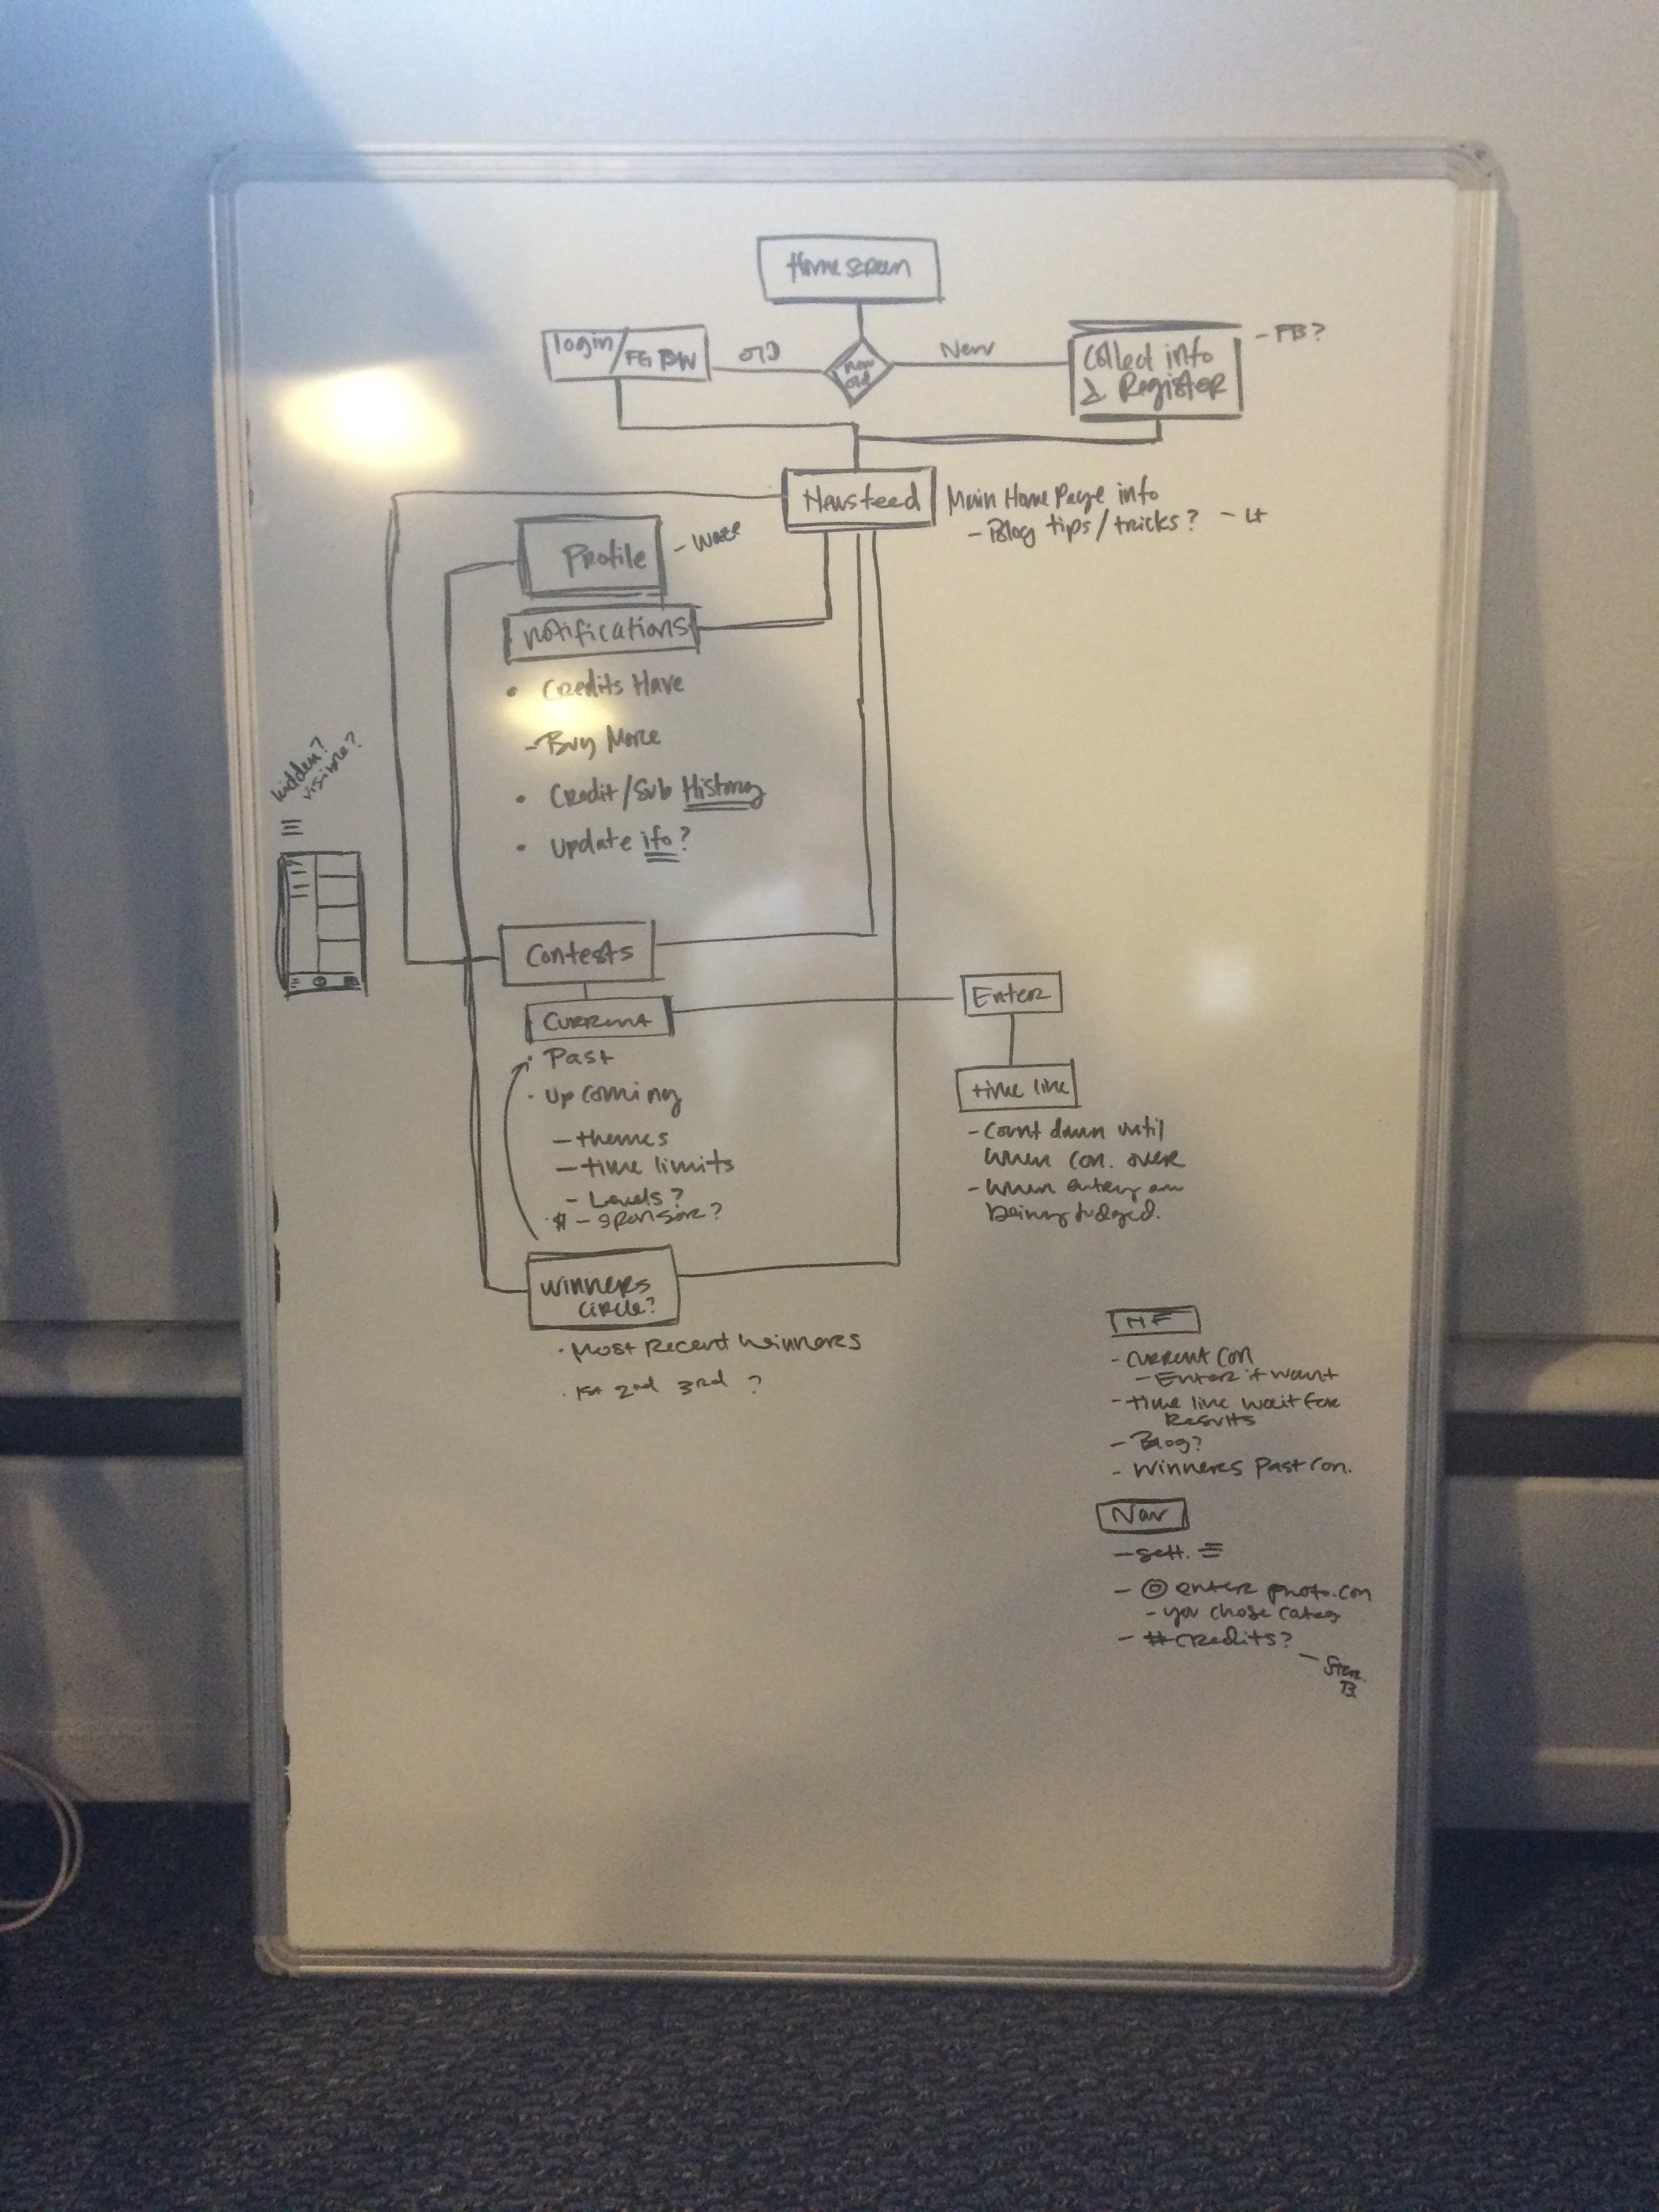 Home screen
login/FG PW
OlD
New old
New
Collect info
& Register
- FB?
Newsfeed
Main Home Page info
- Blog tips/tricks? - Lt
Profile
- Waze
Notifications
• Credits Have
- Buy More
• Credit/Sub History
• Update ifo?
hidden?
visible?
Contests
Current
• Past
• Up coming
- themes
- time limits
- Levels?
$ - Sponsor?
Enter
time line
- Count down until
when con. over
- When entry are
being Judged.
Winners
Circle?
• Most Recent Winners
• 1st 2nd 3rd ?
NF
- Current Con
- Enter if want
- time line wait for
Results
- Blog?
- Winners Past Con.
Nav
- Sett.
- enter photo. con
- you chose categ
- # credits?